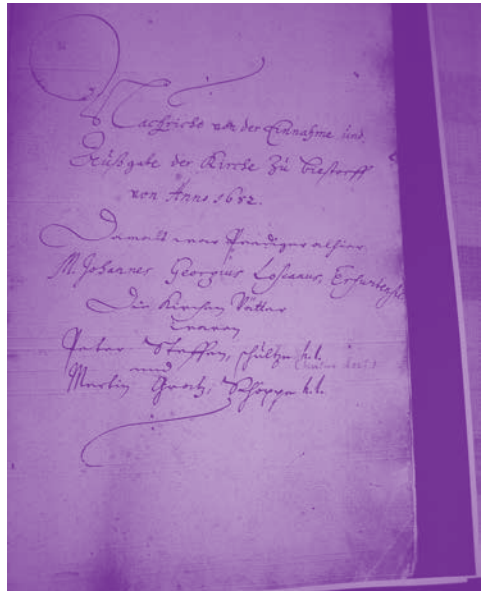 Nachricht von der Einnahme und
Außgabe der Kirche zu Biestorff
von Anno 1682.
Damalß war Prediger alhier
M. Johannes Georgius Losianus, Erfurtens
Die Kirchen Vätter
waren
Peter Steffen, schültze h.t.
und
Martin Grotz, Schöppe h.t.